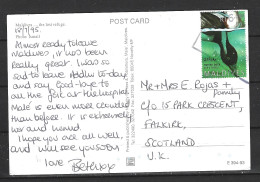 Maldives
POST CARD
12/7/95.
Almost ready to leave
Maldives, it has been
really great. I was so
sad to leave Addu today
and say good-bye to
all the
Male is even more crowded
than before. It is extremely
hot and humid.
Hope you are all well,
and will see you soon
love
Mr + Mrs E. Rojas +
Family
C/O 15 PARK CRESCENT,
FALKIRK,
SCOTLAND
U.K.